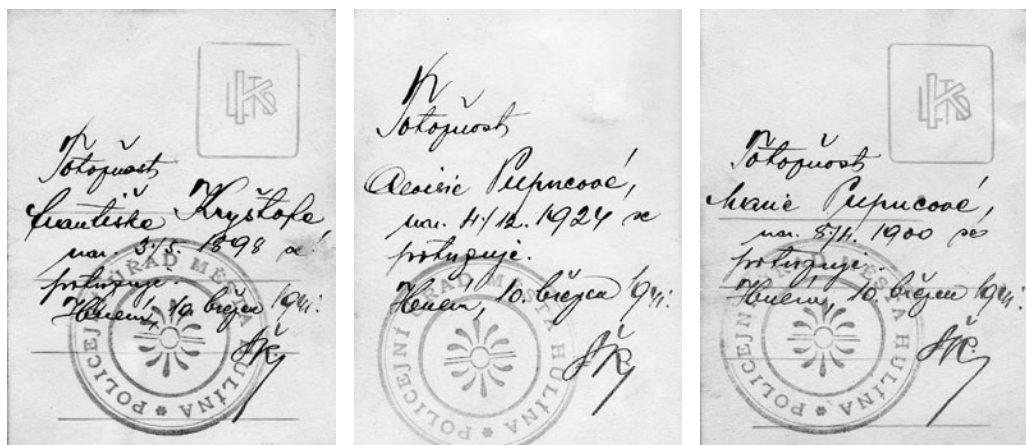 Totožnost
Františka Kryštofa
nar. 3/5. 1898 se
potvrzuje.
Hulín, 10. března 1941.
POLICEJNÍ ÚŘAD MĚSTA HULÍNA
Totožnost
Aloisie Pupucové,
nar. 4/12. 1924 se
potvrzuje.
Hulín, 10. března 1941.
POLICEJNÍ ÚŘAD MĚSTA HULÍNA
Totožnost
Marie Pupucové,
nar. 8/4. 1900 se
potvrzuje.
Hulín, 10. března 1941.
POLICEJNÍ ÚŘAD MĚSTA HULÍNA